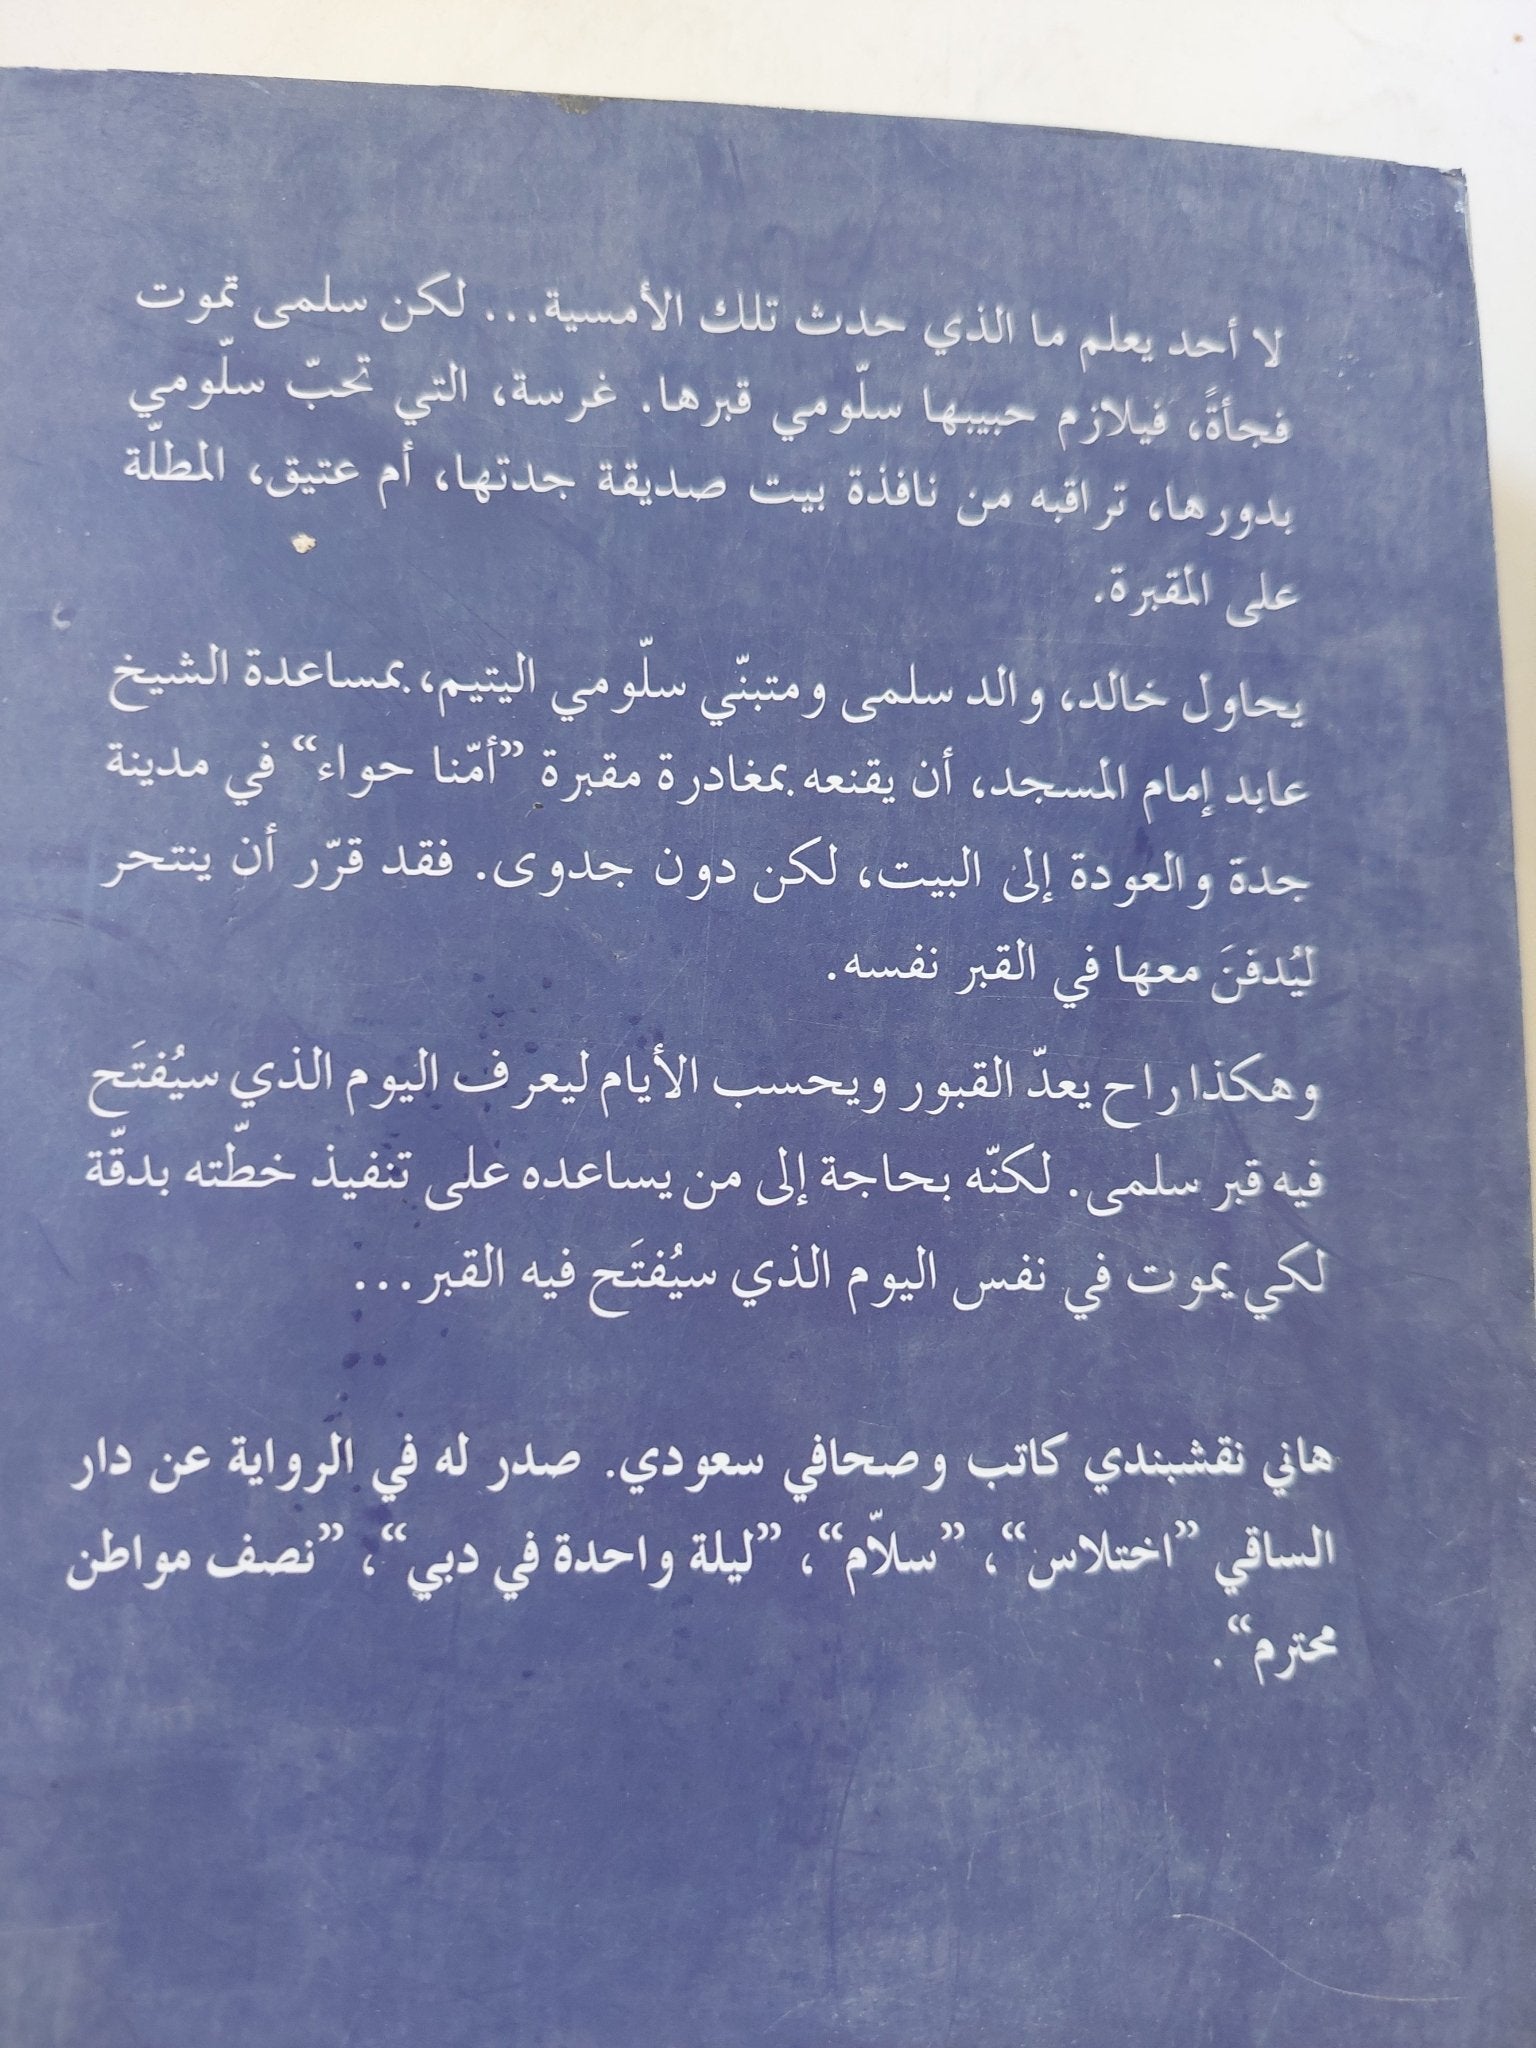 لا أحد يعلم ما الذي حدث تلك الأمسية... لكن سلمى تموت
فجأةً، فيلازم حبيبها سلّومي قبرها. غرسة، التي تحبّ سلّومي
بدورها، تراقبه من نافذة بيت صديقة جدتها، أم عتيق، المطلّة
على المقبرة.
يحاول خالد، والد سلمى ومتبنّي سلّومي اليتيم، بمساعدة الشيخ
عابد إمام المسجد، أن يقنعه بمغادرة مقبرة ”أمّنا حواء“ في مدينة
جدة والعودة إلى البيت، لكن دون جدوى. فقد قرّر أن ينتحر
ليُدفنَ معها في القبر نفسه.
وهكذا راح يعدّ القبور ويحسب الأيام ليعرف اليوم الذي سيُفتَح
فيه قبر سلمى. لكنّه بحاجة إلى من يساعده على تنفيذ خطّته بدقّة
لكي يموت في نفس اليوم الذي سيُفتَح فيه القبر...
هاني نقشبندي كاتب وصحافي سعودي. صدر له في الرواية عن دار
الساقي ”اختلاس“، ”سلاّم“، ”ليلة واحدة في دبي“، ”نصف مواطن
محترم“.